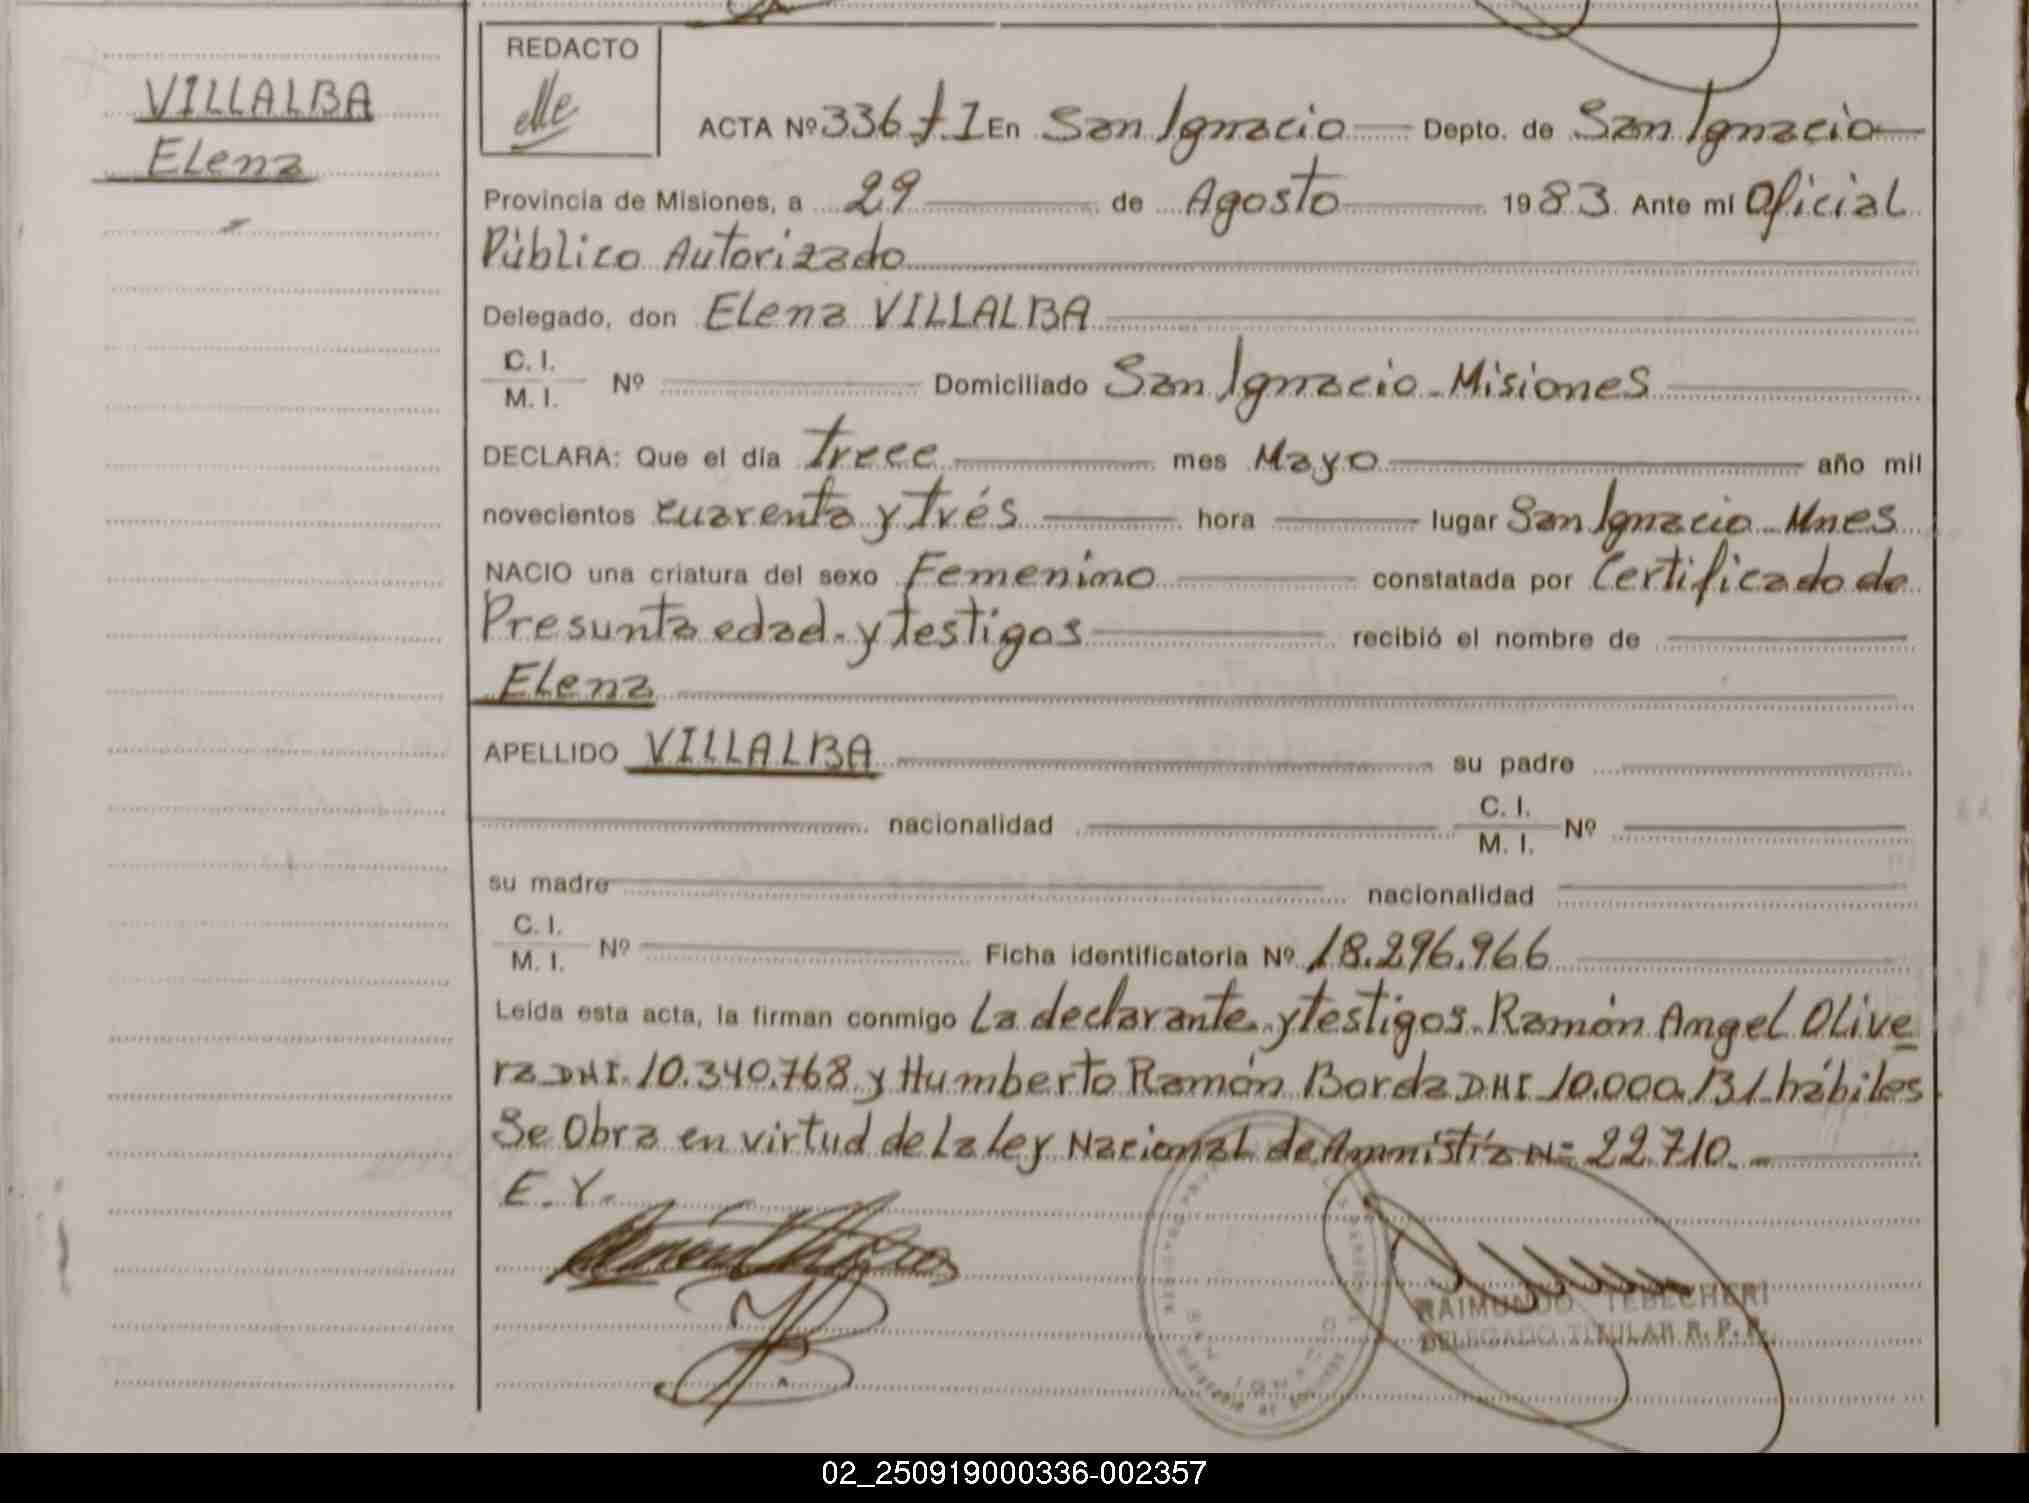 VILLALBA
Elena
REDACTO
ACTA Nº 336 f I En San Ignacio Depto. de San Ignacio
Provincia de Misiones, a 29 de Agosto 1983 Ante mi Oficial
Público Autorizado
Delegado, don Elena VILLALBA
C. I.
M. I. Nº Domiciliado San Ignacio - Misiones
DECLARA: Que el día trece mes Mayo año mil
novecientos cuarenta y trés hora lugar San Ignacio Mnes
NACIO una criatura del sexo Femenino constatada por Certificado de
Presunta edad - y testigos recibió el nombre de
Elena
APELLIDO VILLALBA su padre
nacionalidad C. I.
M. I. Nº
su madre nacionalidad
C. I.
M. I. Nº Ficha identificatoria Nº 18.296.966
Leída esta acta, la firman conmigo La declarante y testigos Ramón Angel Olive
ra DNI. 10.340.768 y Humberto Ramón Borda DNI 10.000.131 hábiles
Se Obra en virtud de la Ley Nacional de Amnistía Nº 22.710 -
E. Y.
RAIMUNDO TEBECHERI
DELEGADO TITULAR R. P. P.
02_250919000336-002357